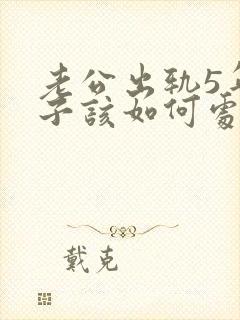 老公出轨5年
子该如何處
戴克